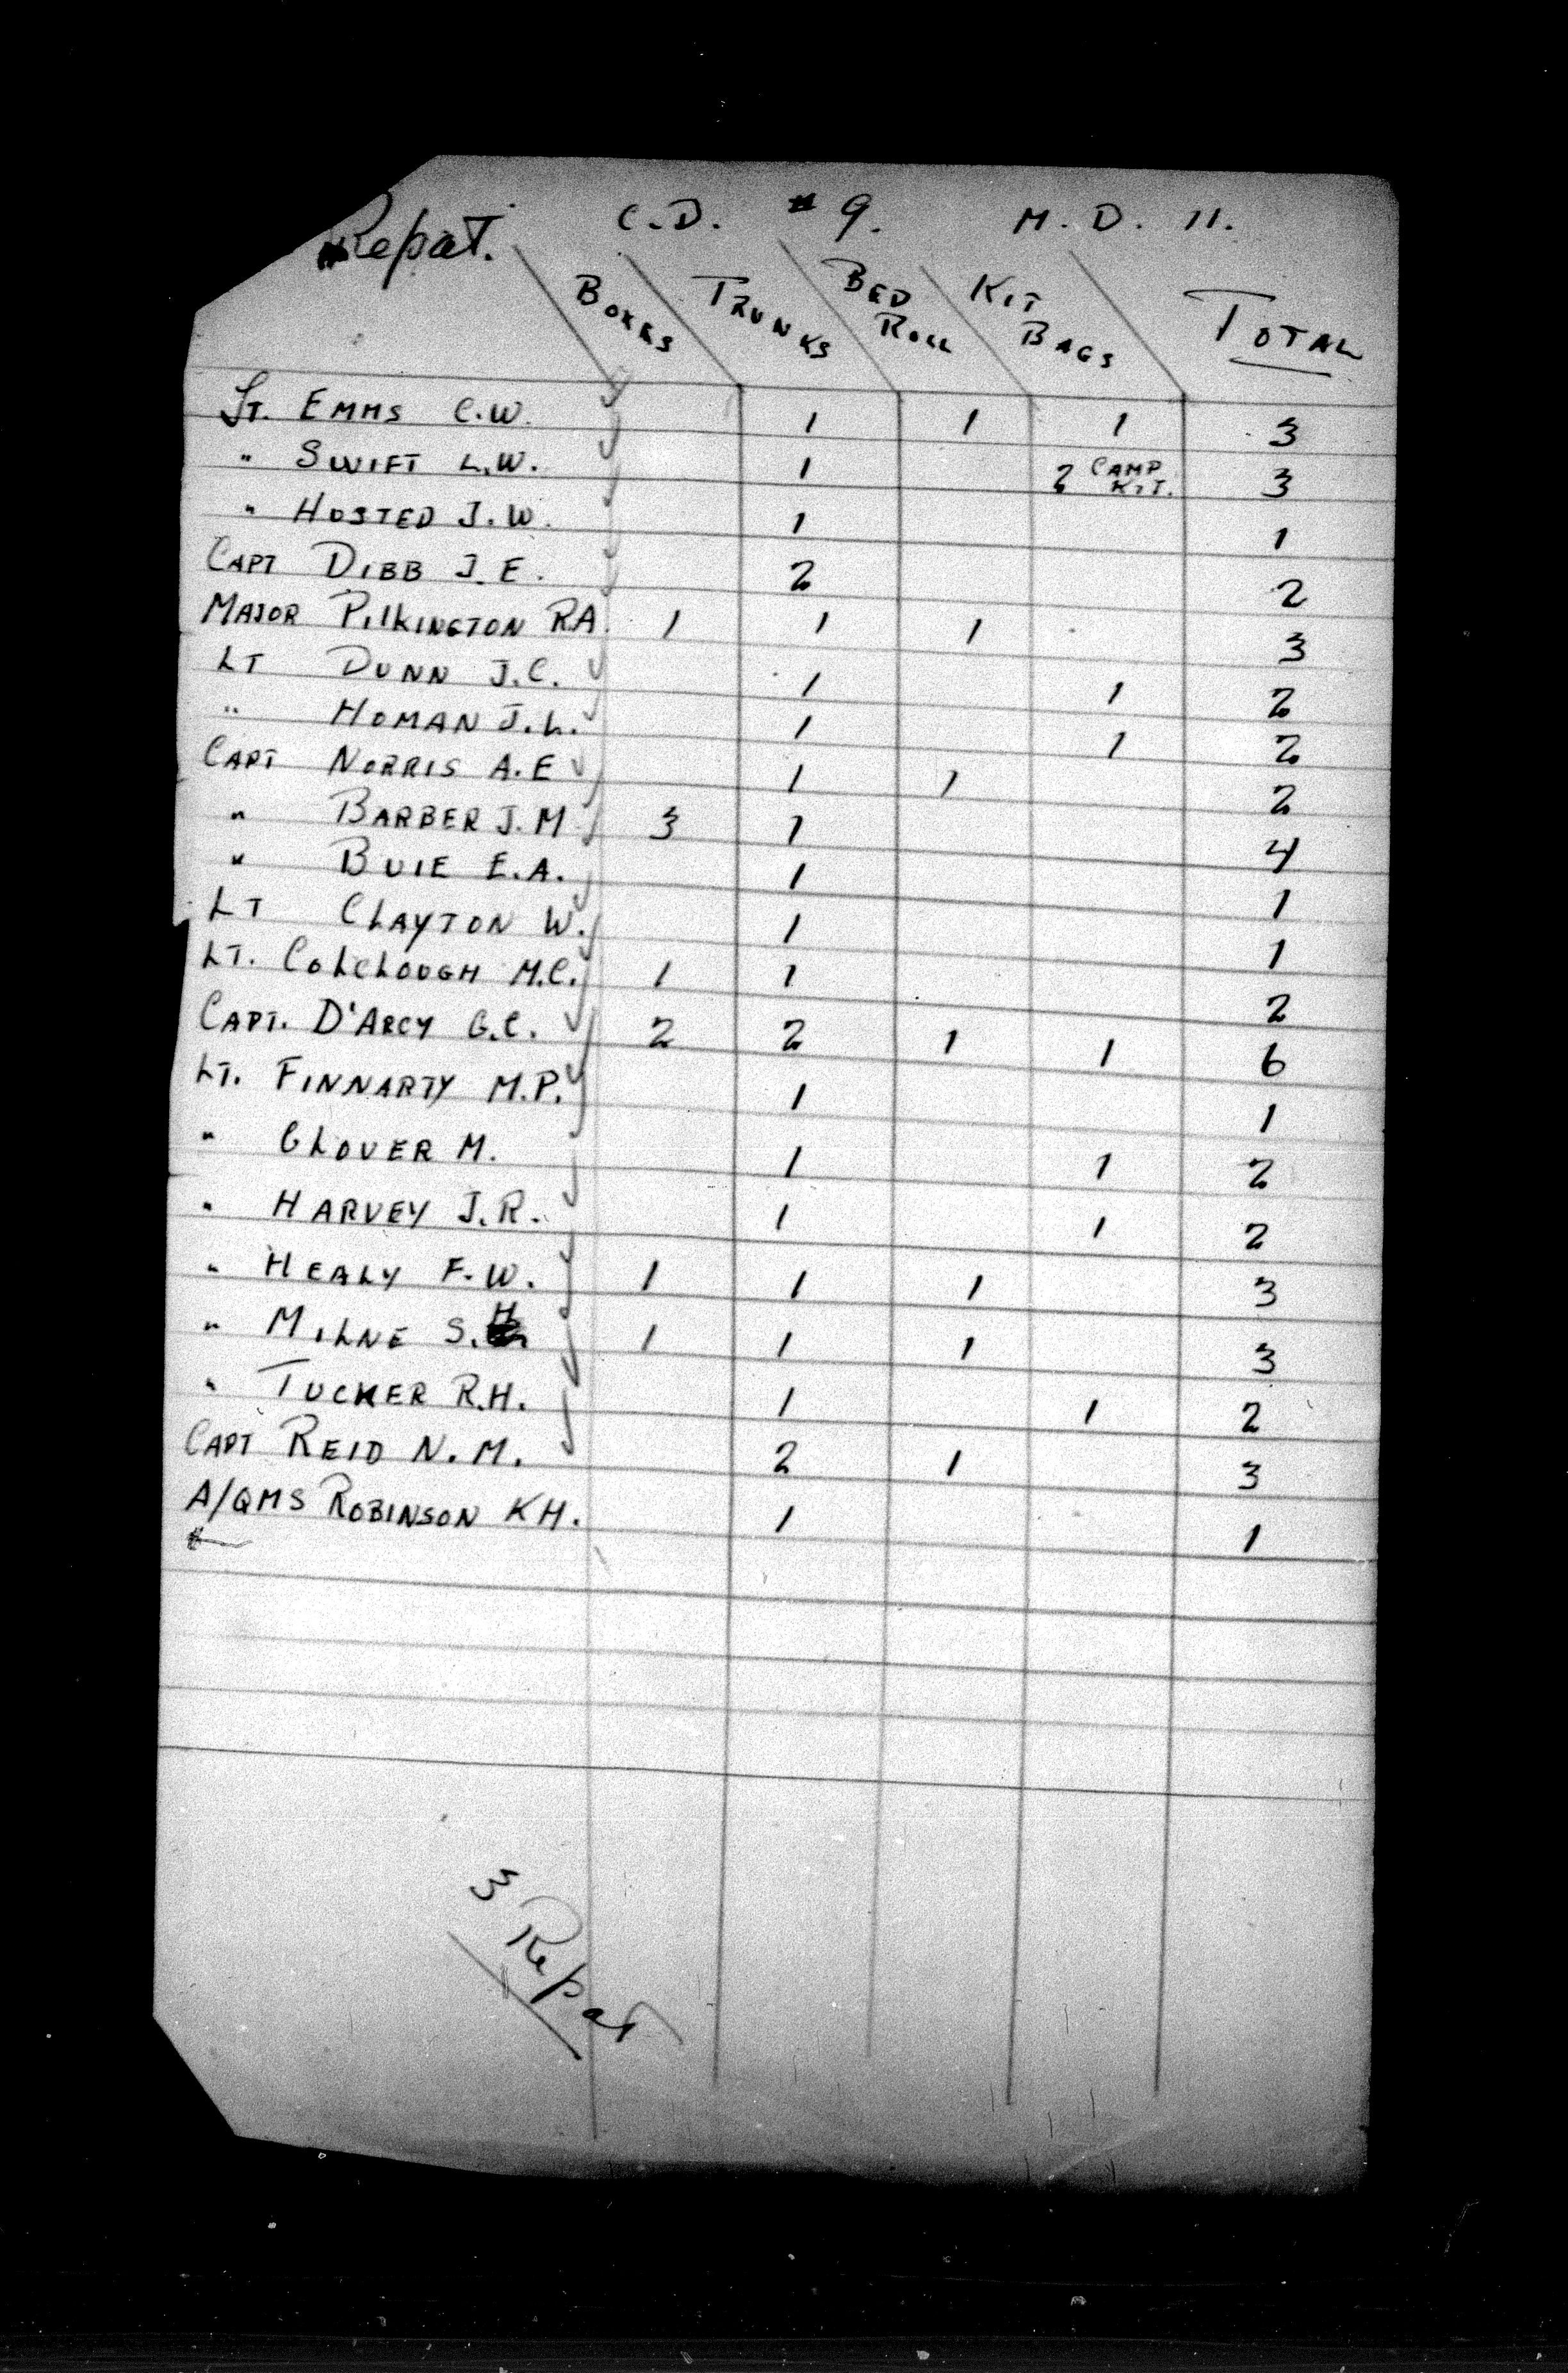 Repat. C.D. # 9. M.D. 11.
BOXES TRUNKS BED ROLL KIT BAGS TOTAL
LT. EMMS C.W. 1 1 1 3
" SWIFT L.W. 1 2 CAMP KIT. 3
" HOSTED J.W. 1 1
CAPT DIBB J.E. 2 2
MAJOR PILKINGTON R.A. 1 1 1 3
LT DUNN J.C. 1 1 2
" HOMAN J.L. 1 1 2
CAPT NORRIS A.E 1 1 2
" BARBER J.M 3 1 4
" BUIE E.A. 1 1
LT CLAYTON W. 1 1
LT. COLCLOUGH M.C. 1 1 2
CAPT. D'ARCY G.C. 2 2 1 1 6
LT. FINNARTY M.P. 1 1
" GLOVER M. 1 1 2
" HARVEY J.R. 1 1 2
" HEALY F.W. 1 1 1 3
" MILNE S.H 1 1 1 3
" TUCKER R.H. 1 1 2
CAPT REID N.M. 2 1 3
A/QMS ROBINSON K.H. 1 1
3 Repat